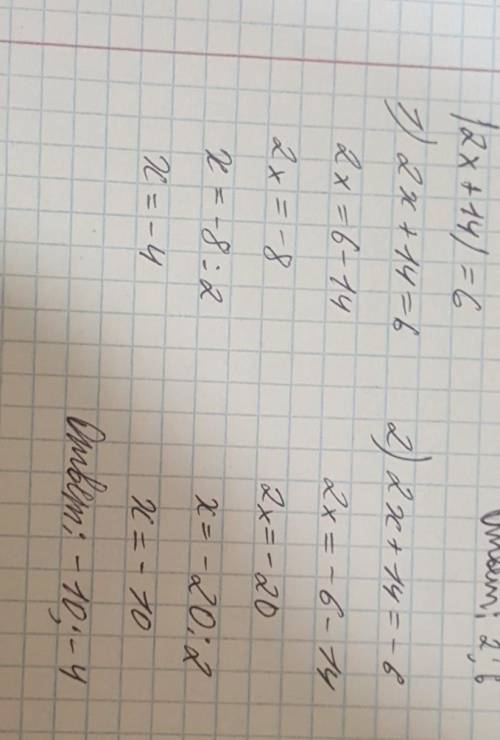 Ответ: 2; 6
|2x+14|=6
1) 2x+14=6
2x=6-14
2x=-8
x=-8:2
x=-4
2) 2x+14=-6
2x=-6-14
2x=-20
x=-20:2
x=-10
Ответ: -10; -4